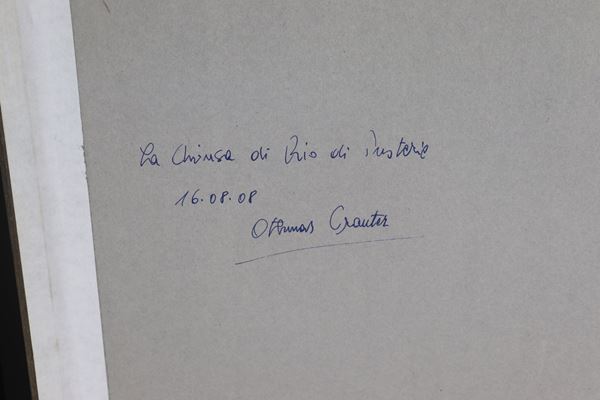 La Chiusa di Rio di Pusteria
16.08.08
Othmar Crautz